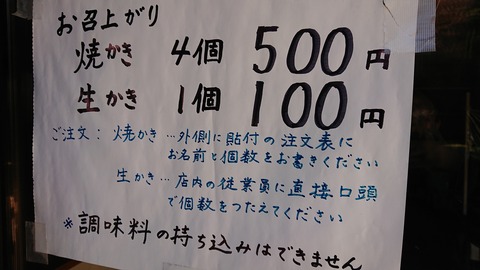 お召上がり
焼かき 4個 500円
生かき 1個 100円
ご注文: 焼かき…外側に貼付の注文表に
お名前と個数をお書きください
生かき…店内の従業員に直接口頭
で個数をつたえてください
※調味料の持ち込みはできません